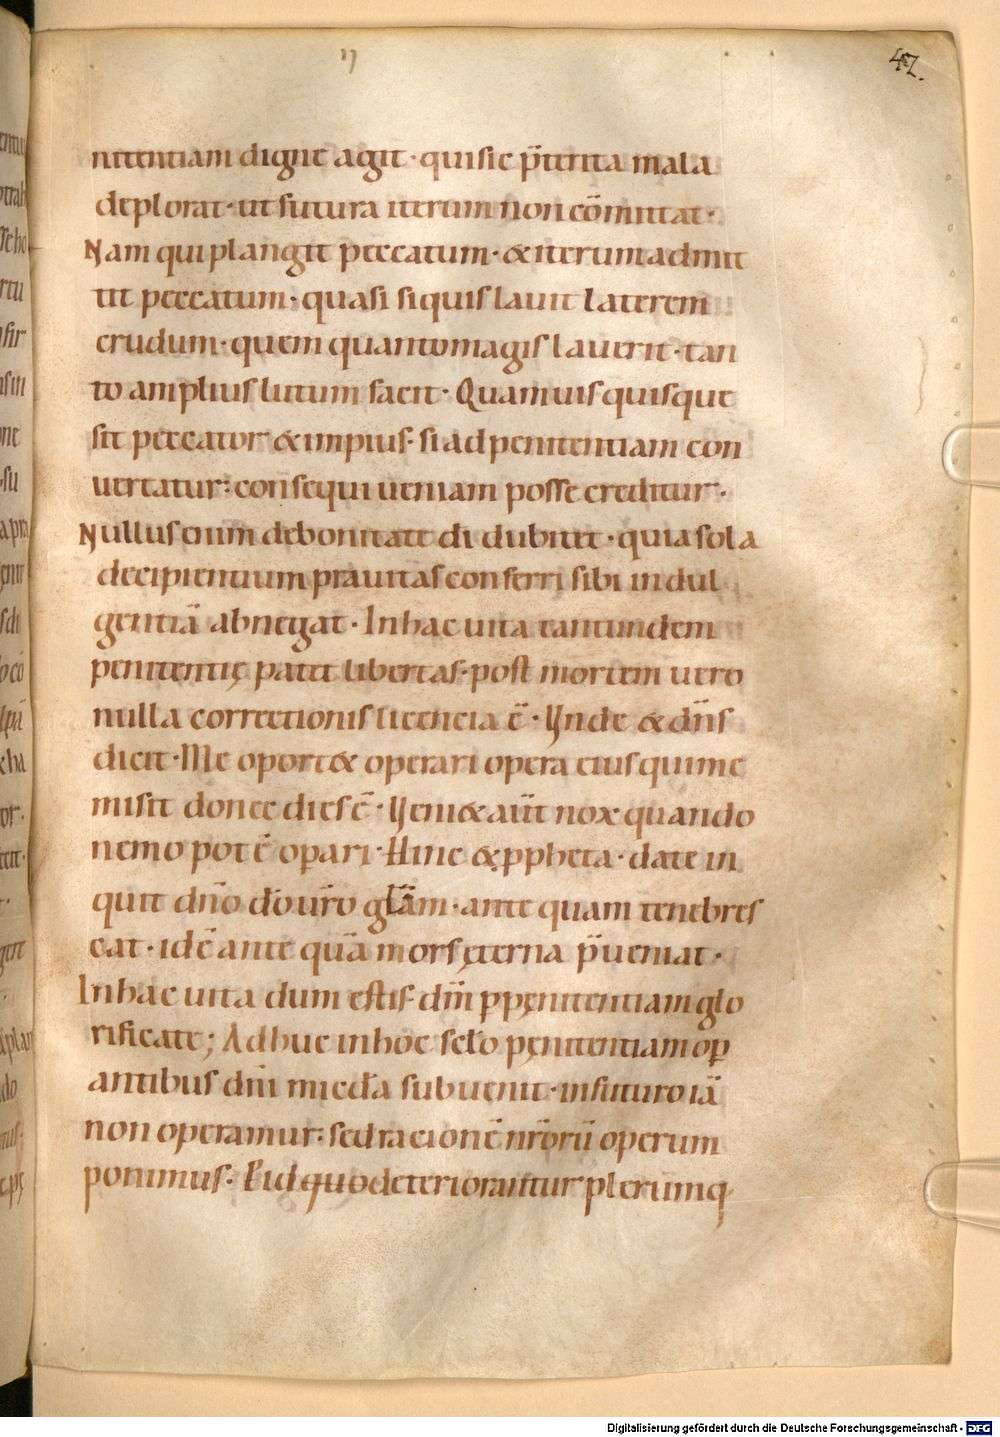 47.
nitentiam digne agit · qui sic p̄terita mala
deplorat · ut futura iterum non cōmittat ·
Nam qui plangit peccatum · & iterum admit
tit peccatum · quasi si quis lavit laterem
crudum · quem quanto magis laverit · tan
to amplius lutum facit · Quamvis quisque
sit peccator & impius · si ad penitentiam con
vertatur : consequi veniam posse creditur ·
Nullus enim de bonitate dī dubitet · quia sola
decipientium pravitas conferri sibi indul
gentiā abnegat · In hac vita tantundem
penitentię patet libertas · post mortem vero
nulla correctionis licencia ē · Unde & dn̄s
dicit · Me oport& operari opera eius qui me
misit donec dies ē · Veni& aūt nox quando
nemo potē oꝑari · Hinc & ꝓpheta · date in
quit dn̄o dō ur̄o glām · ante quam tenebres
cat · id ē ante quā mors ęterna p̄veniat ·
In hac vita dum estis · dm̄ ꝑ pęnitentiam glo
rificate ; Adhuc in hoc sclō pęnitentiam oꝑ
antibus dn̄i micdā subvenit · in futuro iā
non operamur : sed racionē nr̄orū operum
ponimus · Eid quo deteriorantur plerumq
Digitalisierung gefördert durch die Deutsche Forschungsgemeinschaft - DFG